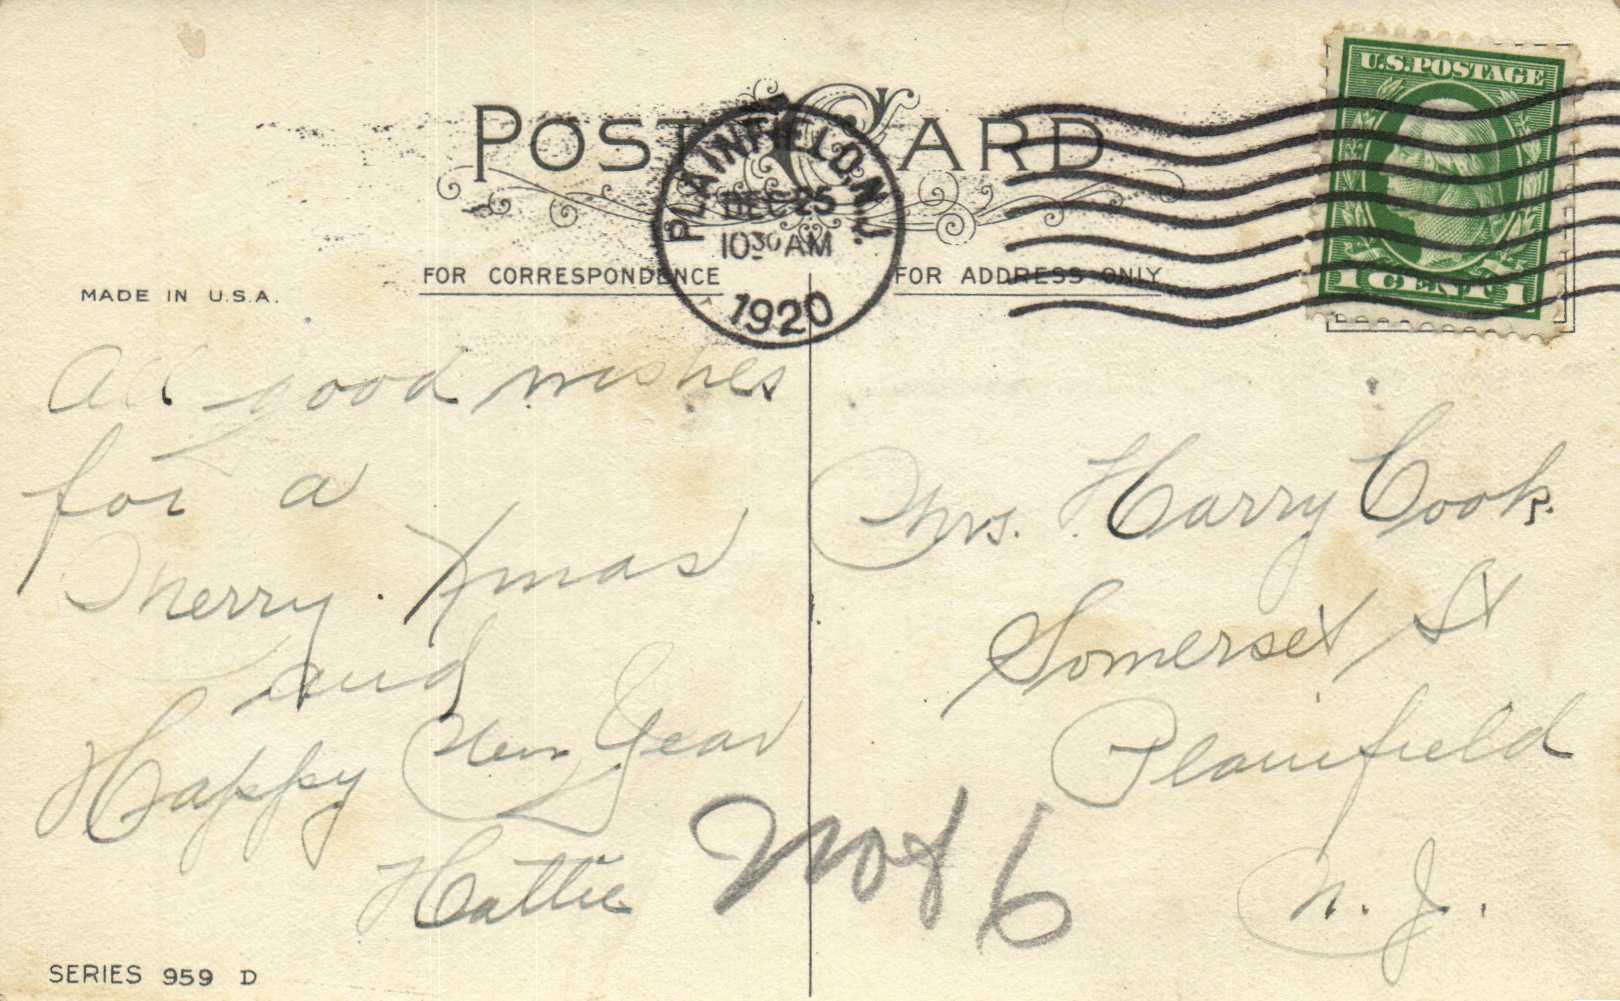 POST CARD
U.S. POSTAGE
1 CENT 1
PLAINFIELD, N.J.
DEC 25
10 30 AM
1920
MADE IN U.S.A.
FOR CORRESPONDENCE
FOR ADDRESS ONLY
All good wishes
for a
Merry Xmas
and
Happy New Year
Hattie
Mrs. Harry Cook.
Somerset St
Plainfield
N. J.
Not 6
SERIES 959 D